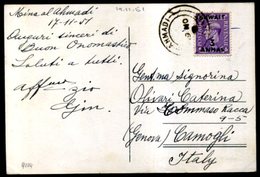 19.11.51
Mina al Ahmadi
17-11-51
Auguri sinceri di
Buon Onomastico
Saluti a tutti.
aff.mo
zio
Gin
AHMADI
KUWAIT
ANNAS
Gent.ma Signorina
Olivari Caterina
Via Tommaso Racca
9-5
(Genova) Camogli
Italy